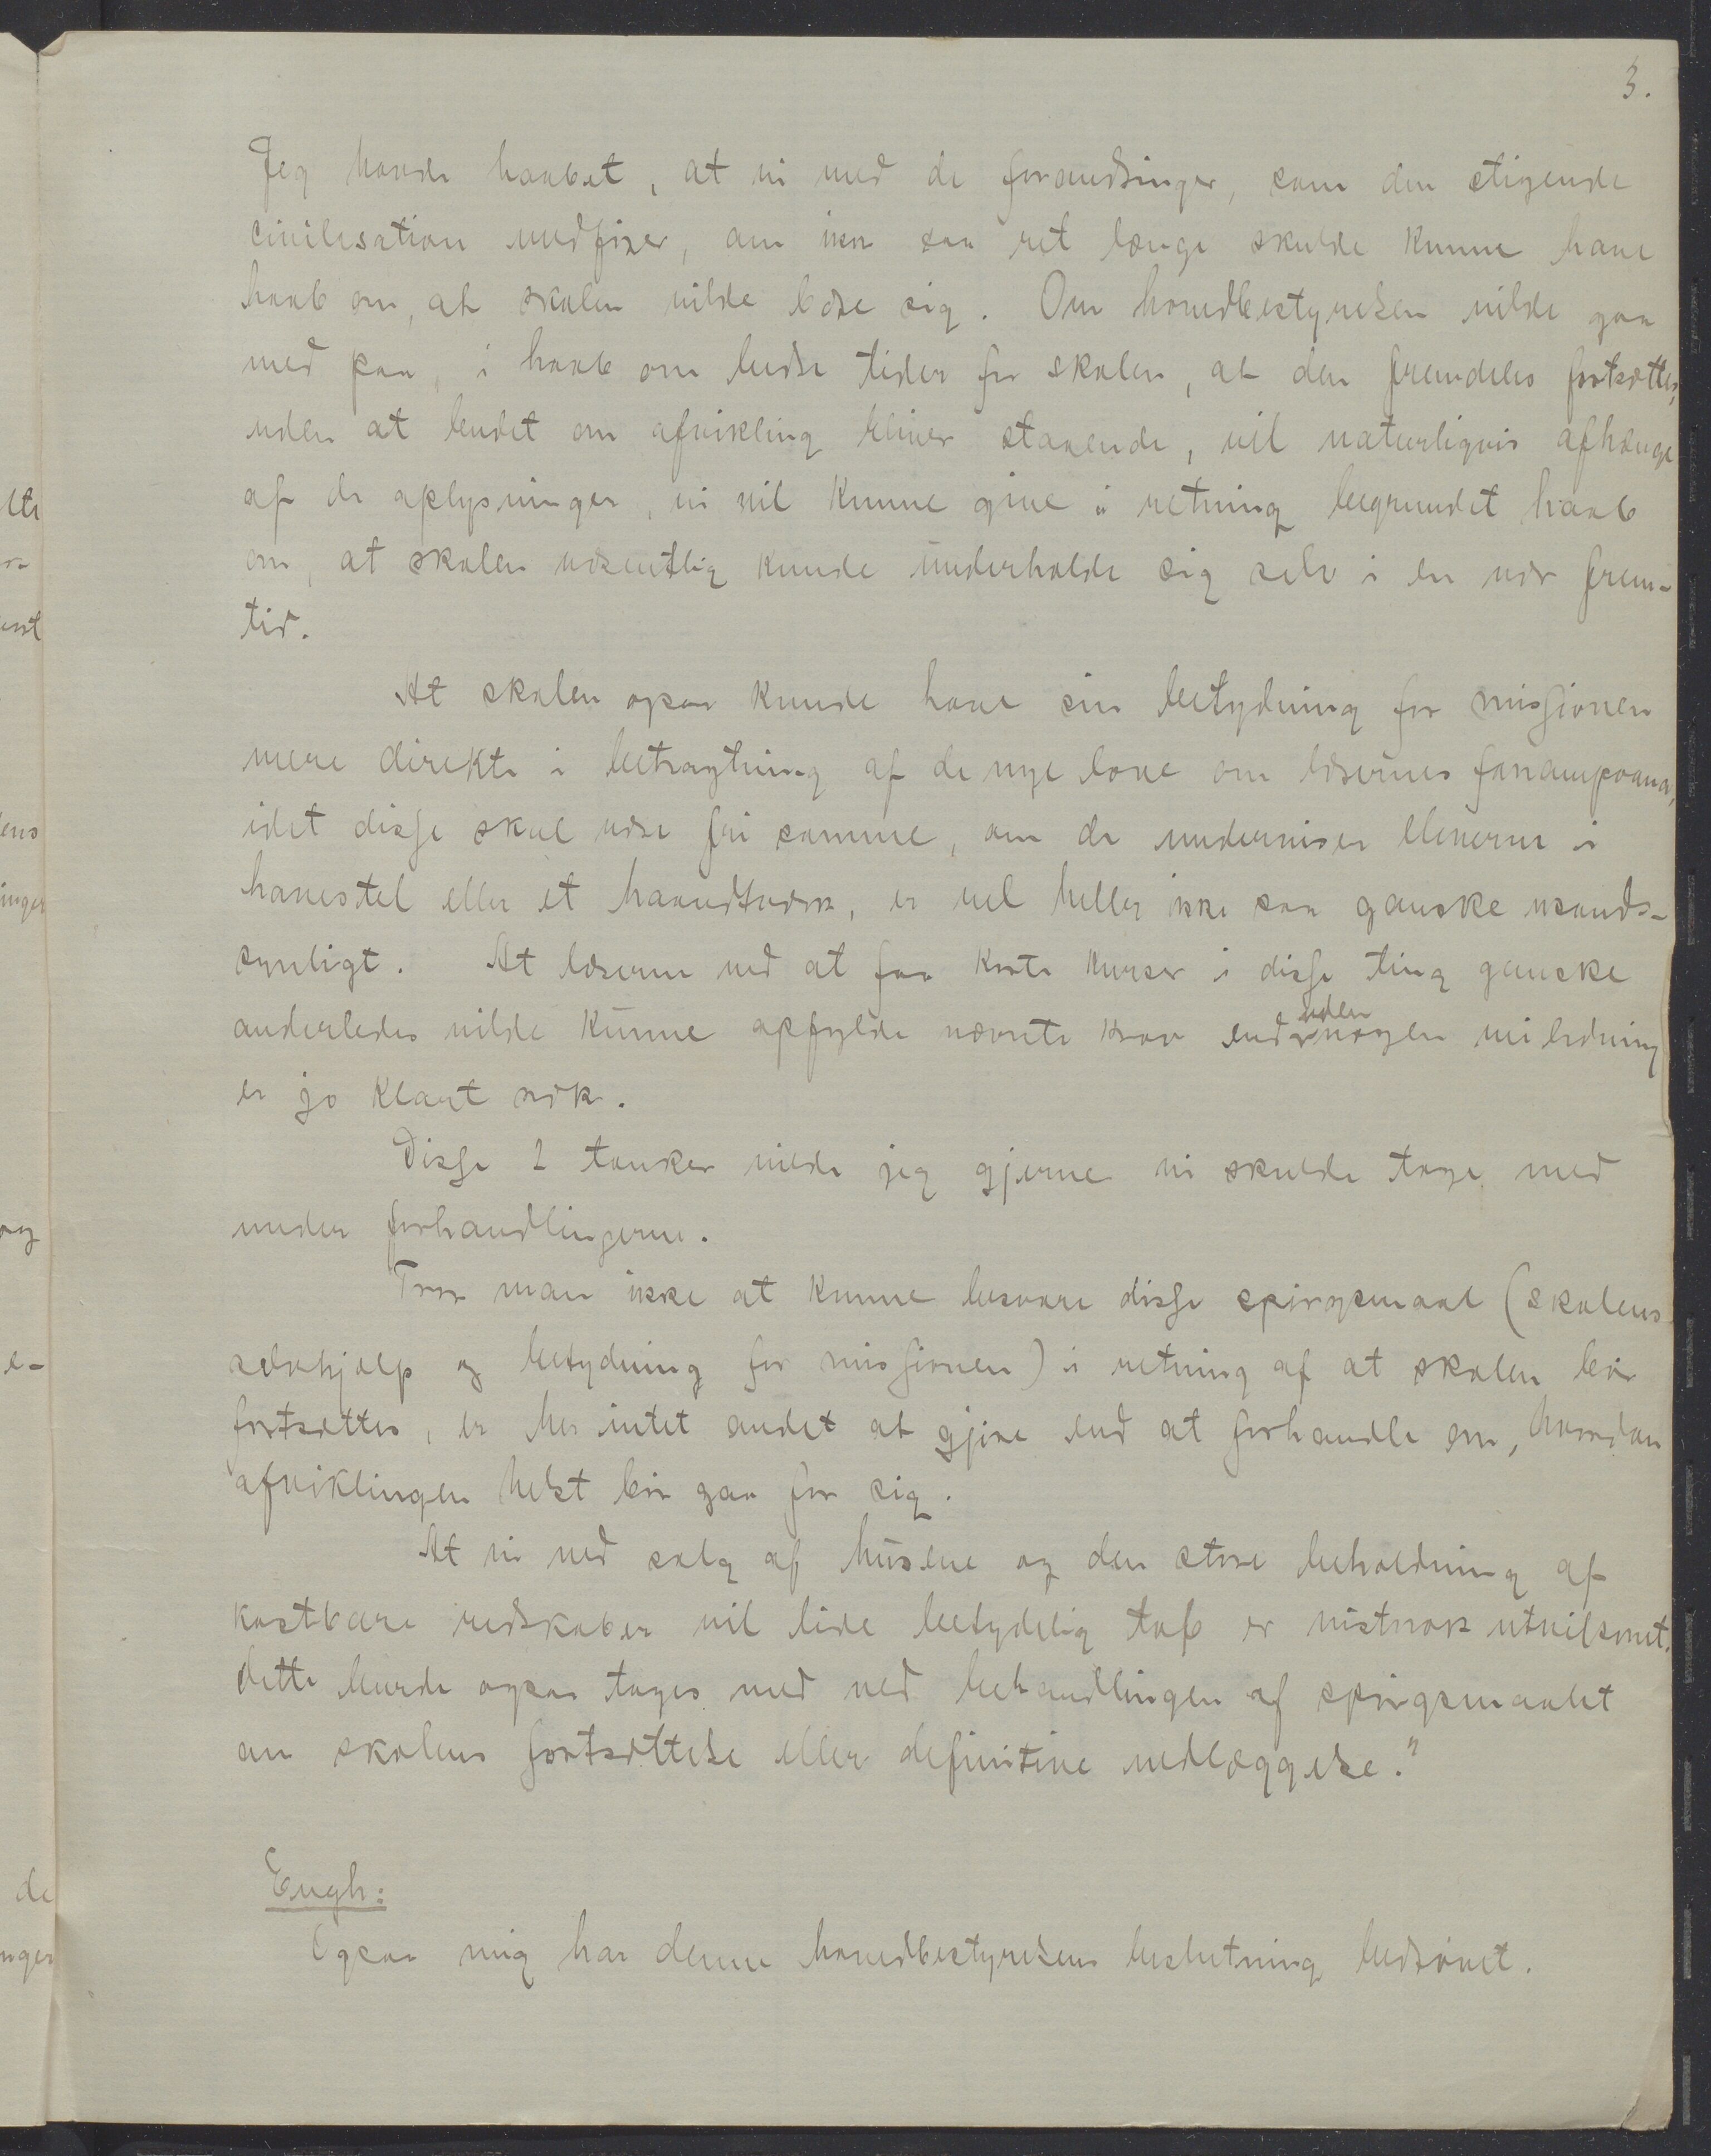 3.
Jeg havde haabet, at vi med de forandringer, som den stigende
civilisation medfører, om ikke saa ret længe skulde kunne have
haab om, at skolen vilde bære sig. Om hovedbestyrelsen vilde gaa
med paa, i haab om bedre tider for skolen, at den fremdeles fortsættes,
uden at budet om afvikling bliver staaende, vil naturligvis afhænge
af de oplysninger, vi vil kunne give i retning begrundet haab
om, at skolen væsentlig kunde underholde sig selv i en nær frem-
tid.
At skolen ogsaa kunde have sin betydning for missionen
mere direkte i betragtning af de nye love om læsernes fanampoana,
idet disse skal være fri samme, om de underviser elevene i
havestel eller et haandtverk, er vel heller ikke saa ganske usand-
synligt. At læserne ved at faa korte kurser i disse ting ganske
anderledes vilde kunne opfylde nævnte krav end uden nogen veiledning
er jo klart nok.
Disse 2 tanker vilde jeg gjerne vi skulde tage med
under forhandlingerne.
Tror man ikke at kunne besvare disse spørgsmaal (skolens
selvhjælp og betydning for missionen) i retning af at skolen bør
fortsættes, er her intet andet at gjøre end at forhandle om, hvordan
afviklingen helst bør gaa for sig.
At vi ved salg af husene og den store beholdning af
kostbare redskaber vil lide betydelig tab er vistnok utvilsomt.
dette burde ogsaa tages med ved behandlingen af spørgsmaalet
om skolens fortsættelse eller definitive nedlæggelse."
Engh:
Ogsaa mig har denne hovedbestyrelsens beslutning bedrøvet.